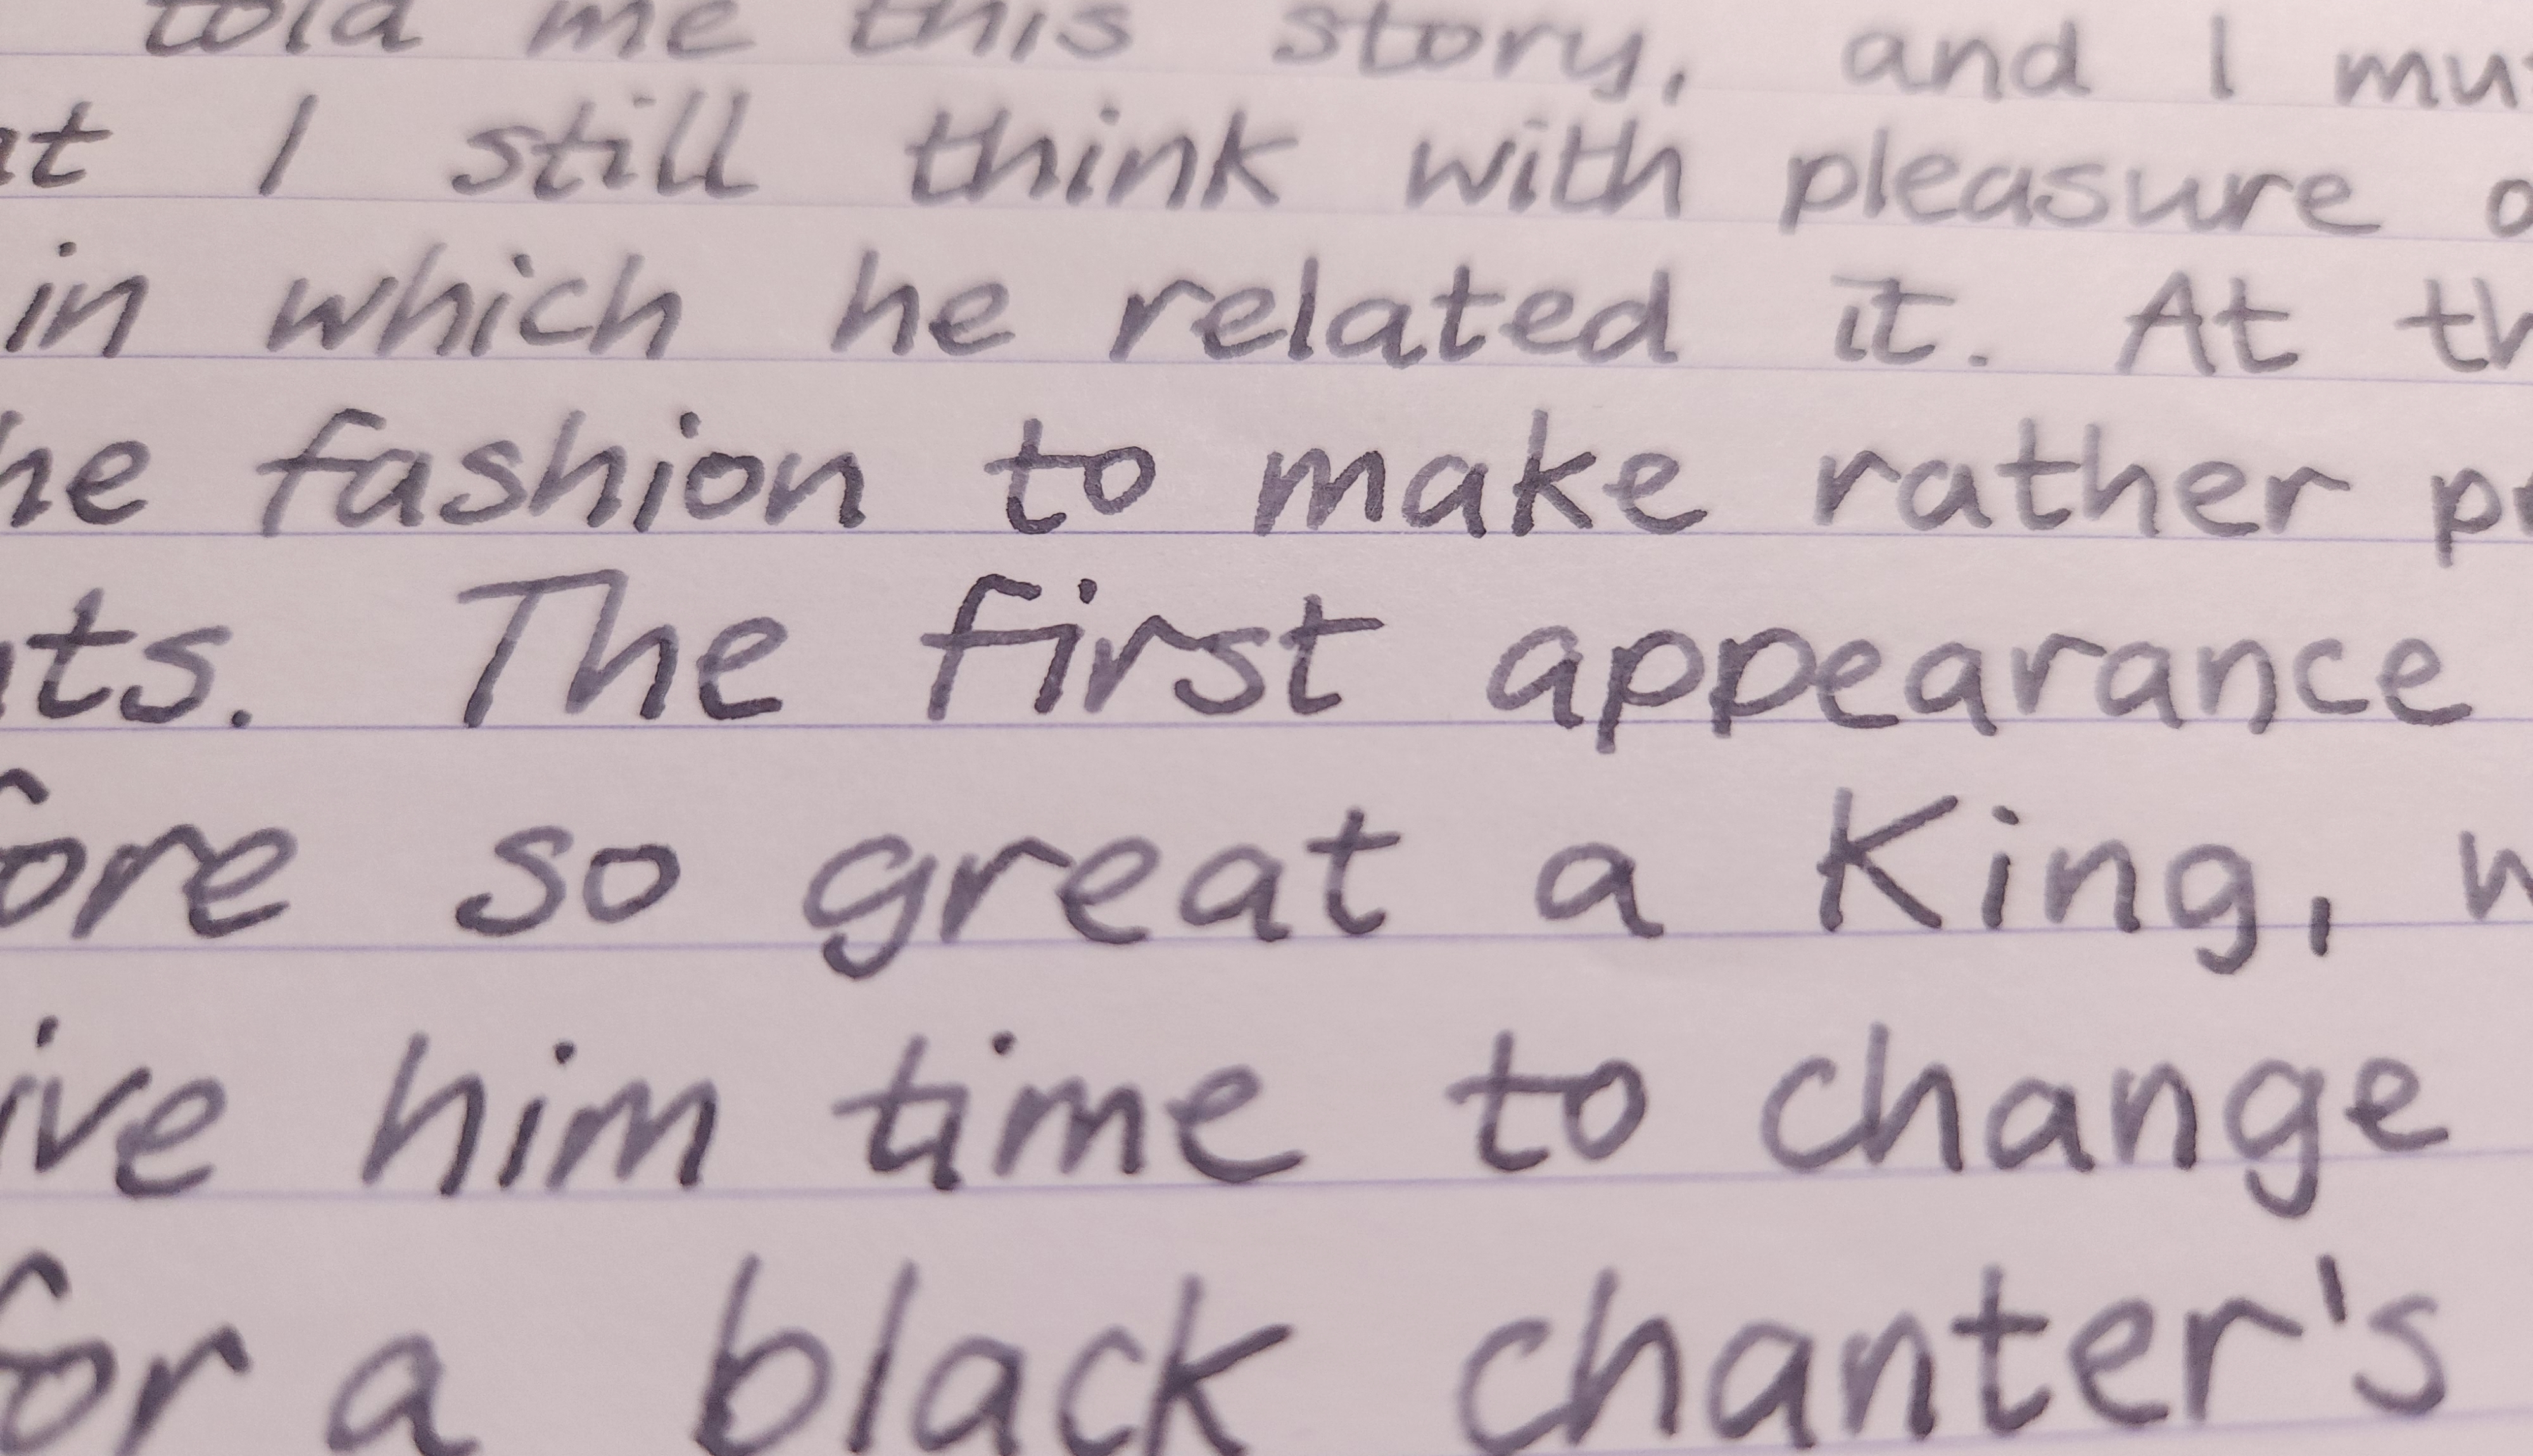 told me this story, and I
I still think with pleasure
in which he related it. At
fashion to make rather
The first appearance
so great a King,
him time to change
for a black chanter's